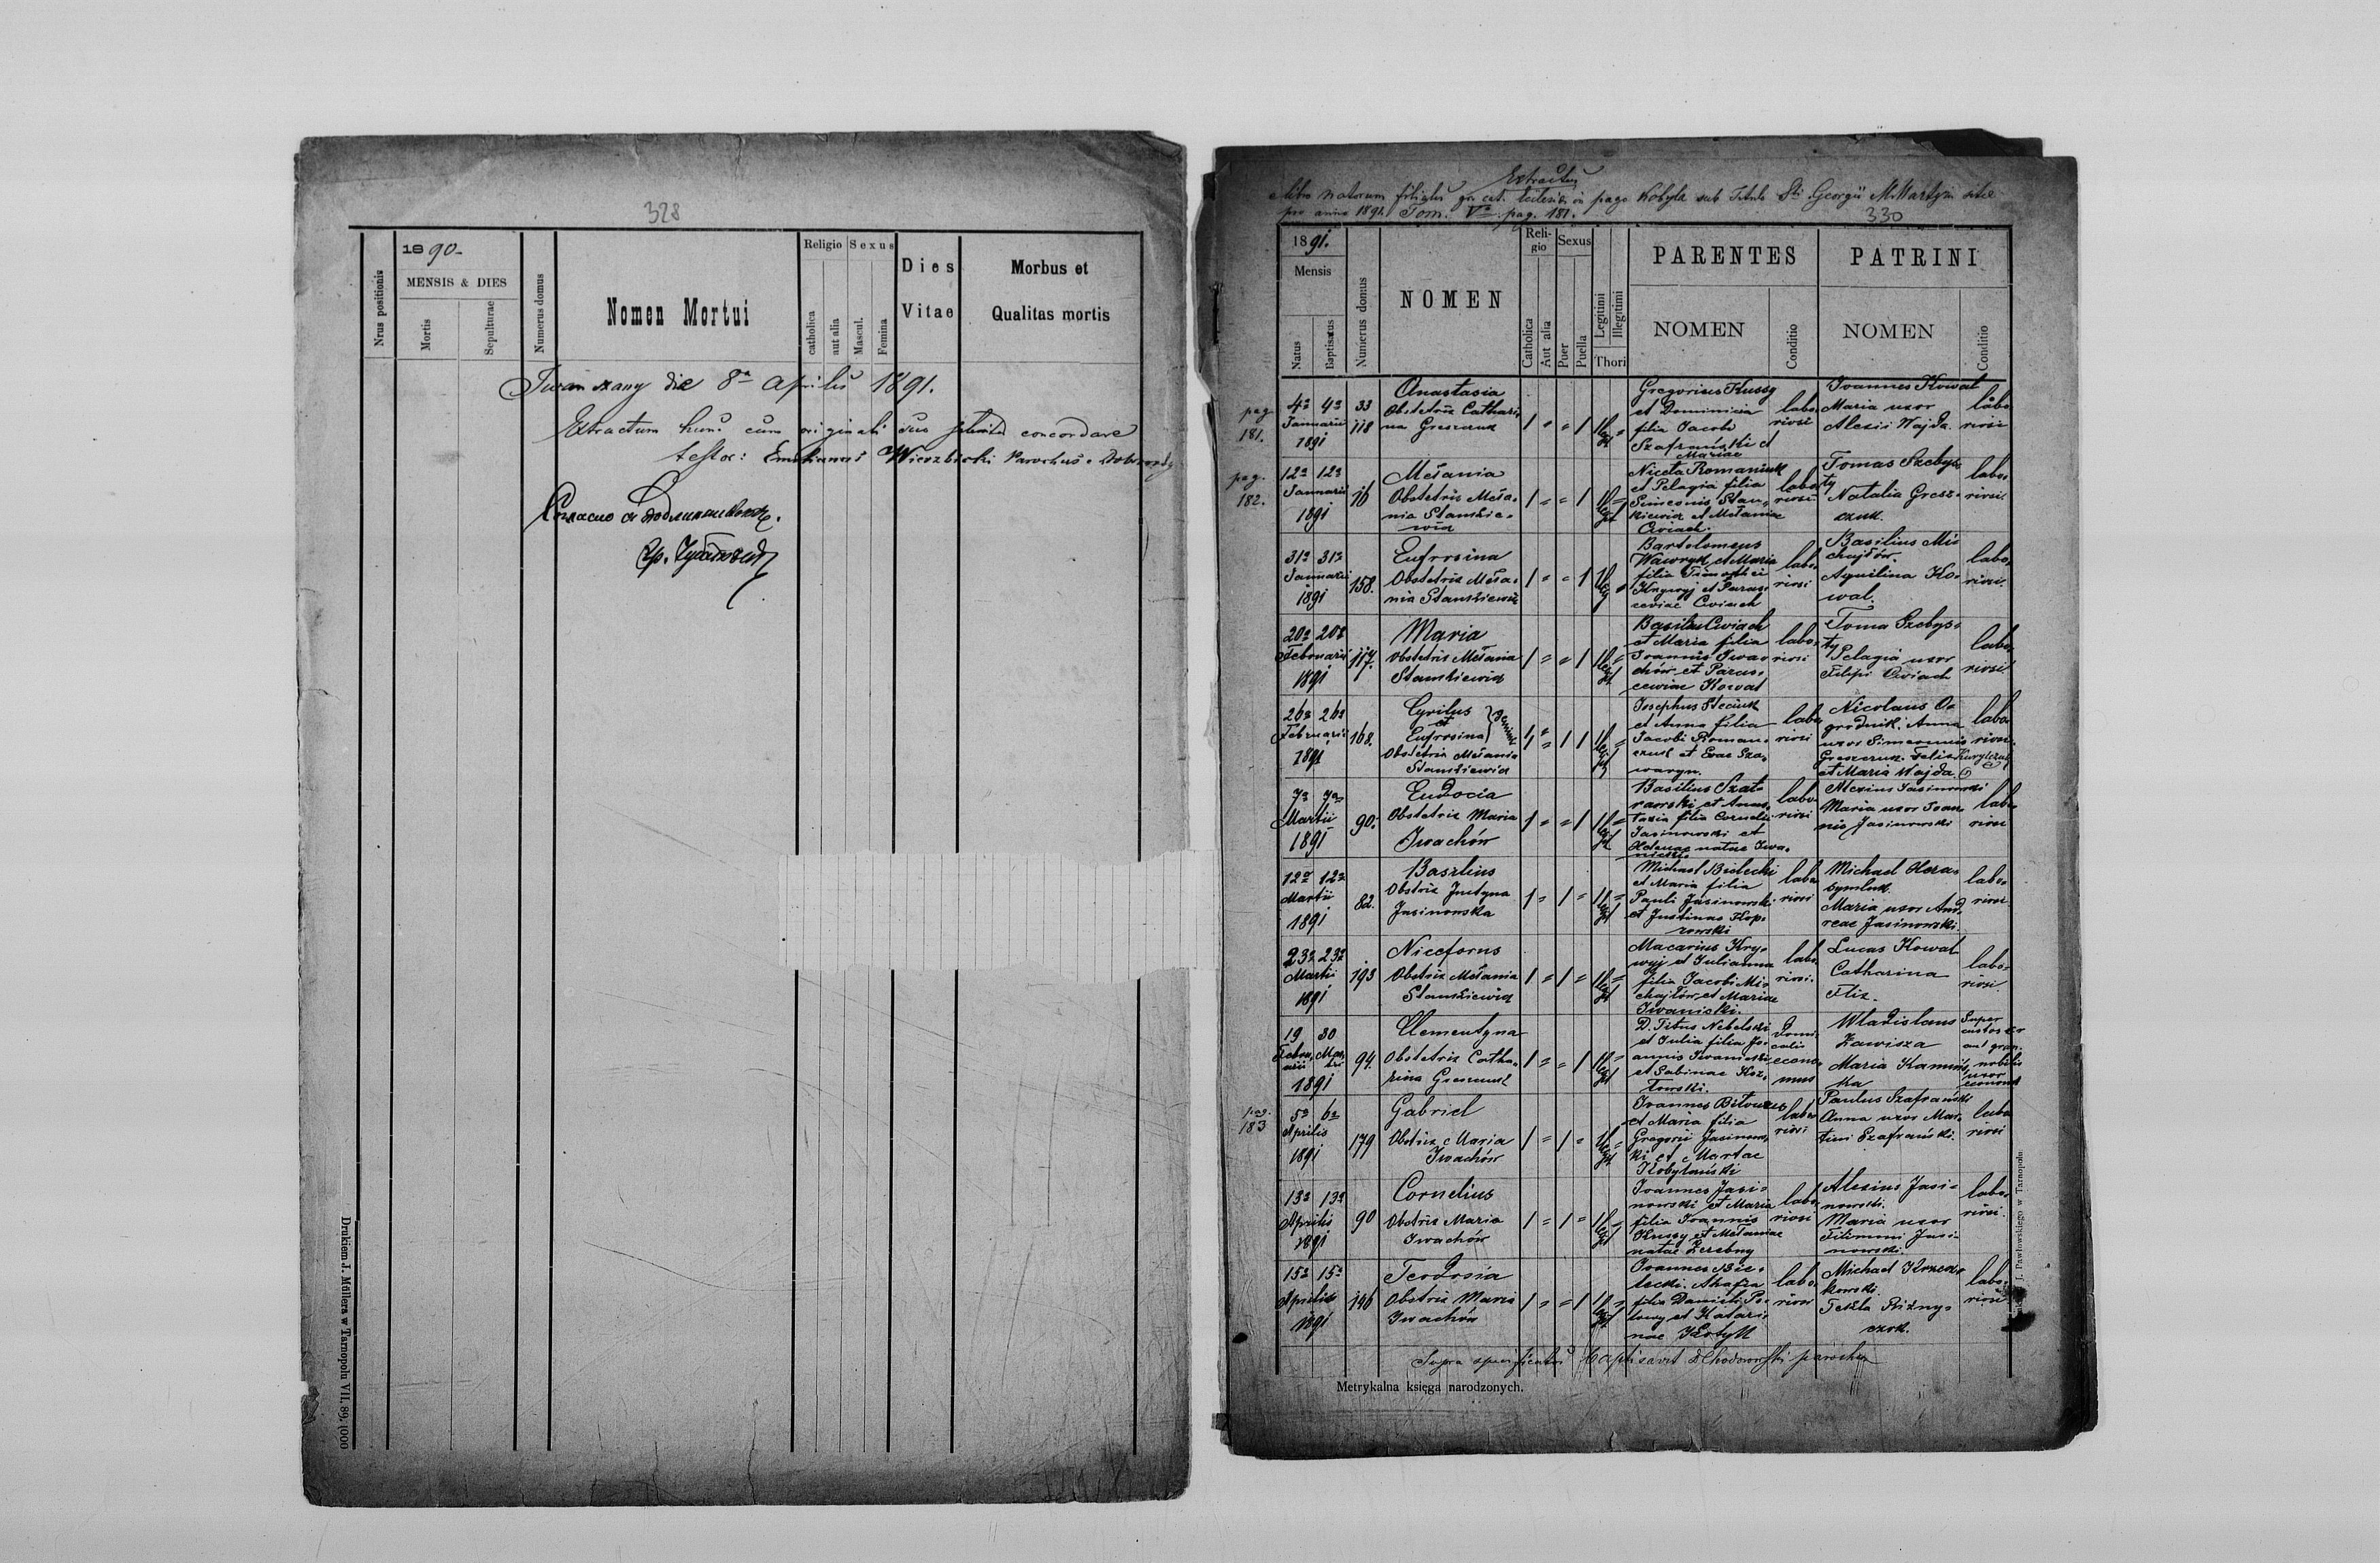 328
Nrus positionis
1890
MENSIS & DIES
Mortis
Sepulturae
Numerus domus
Nomen Mortui
Religio
catholica
aut alia
Sexus
Mascul.
Femina
Dies
Vitae
Morbus et
Qualitas mortis
die 8a Aprilis 1891.
Extractum hunc cum originali suo concordare
testor: Wierzbicki Parochus
Drukiem J. Müllera w Tarnopolu VII. 89. 1000
Extractus
natorum gr. cat. Ecclesiae in pago Kobyla sub Titulo Sti Georgii M. Martyris
pro anno 1891. Tom. V pag. 181.
330
1891.
Mensis
Natus
Baptisatus
Numerus domus
NOMEN
Religio
Catholica
Aut alia
Sexus
Puer
Puella
Legitimi
Illegitimi
Thori
PARENTES
NOMEN
Conditio
PATRINI
NOMEN
Conditio
pag. 181.
4a 4a Januarii 1891
33 118
Anastasia
Obstetrix Catharina Greszczuk
Gregorius Kussy et Dominicia filia Jacobi Szafrański et Mariae
laboriosi
Joannes Kowal
Maria uxor Alexii Wajda
laboriosi
pag. 182.
12a 12a Januarii 1891
16
Mełania
Obstetrix Mełania Stankiewicz
Niceta Romaniuk et Pelagia filia Simeonis Stankiewicz et Mełaniae Cwiach.
laboriosi
Tomas Szebysty
Natalia Greszczuk.
laboriosi
31a 31a Januarii 1891
158.
Eufrosina
Obstetrix Mełania Stankiewicz
Bartolomeus Wawryk et Maria filia Timothei Krywyj et Parasceviae Cwiach
laboriosi
Basilius Michajłów
Aquilina Kowal.
laboriosi
20a 20a Februarii 1891
117.
Maria
Obstetrix Mełania Stankiewicz
Basilius Cwiach et Maria filia Joannis Iwachów et Parasceviae Kowal
laboriosi
Toma Szebysty
Pelagia uxor Filipi Cwiach
laboriosi
26a 26a Februarii 1891
168.
Cyrilus et Eufrosina gemini
Obstetrix Mełania Stankiewicz
Josephus Steciuk et Anna filia Jacobi Romanczuk et Evae
laboriosi
Nicolaus Ogrodnik. Anna uxor Simeonis Greszczuk. Felix et Maria Wajda.
laboriosi
7a 7a Martii 1891
90.
Eudocia
Obstetrix Maria Iwachów
Basilius et Anastasia filia Cornelii Jasinowski et Helenae natae Iwanicki.
laboriosi
Alexius Jasinowski
Maria uxor Joannis Jasinowski
laboriosi
12a 12a Martii 1891
82.
Basilius
Obstrix Justyna Jasinowska
Michael Bielecki et Maria filia Pauli Jasinowski et Justinae
laboriosi
Michael Herasymluk.
Maria uxor Andreae Jasinowski.
laboriosi
23a 23a Martii 1891
193
Niceforus
Obstrix Mełania Stankiewicz
Macarius Krywyj et Julianna filia Jacobi Michajłów et Mariae Iwanicki.
laboriosi.
Lucas Kowal
Catharina Fliz.
laboriosi.
19 Februarii 30 Martii 1891
94.
Clementyna
Obstetrix Catharina Greszczuk
D. Titus Nebelski et Julia filia Joannis Iwanicki et Sabinae Kozłowski.
economus
Wladislaus Zawisza
Maria Kamińska
nobilis uxor economi
pag. 183
5a 6a Aprilis 1891
179
Gabriel
Obstrix Maria Iwachów
Joannes et Maria filia Gregorii Jasinowski et Martae Kobylański
laboriosi
Paulus Szafrański
Anna uxor Martini Szafrański.
laboriosi
13a 13a Aprilis 1891
90
Cornelius
Obstrix Maria Iwachów
Joannes Jasinowski et Maria filia Joannis Kussy et Mełaniae natae Zerebny
laboriosi
Alexius Jasinowski.
Maria uxor Jasinowski.
laboriosi.
15a 15a Aprilis 1891
146
Teodosia
Obstrix Maria Iwachów
Joannes Bielecki. Ahafia filia Danieli et Katarinae
laboriosi
Michael
Tekla
laboriosi
Supra specificatos baptisavit Chodorowski parochus
Metrykalna księga narodzonych.
J. Pawłowskiego w Tarnopolu.